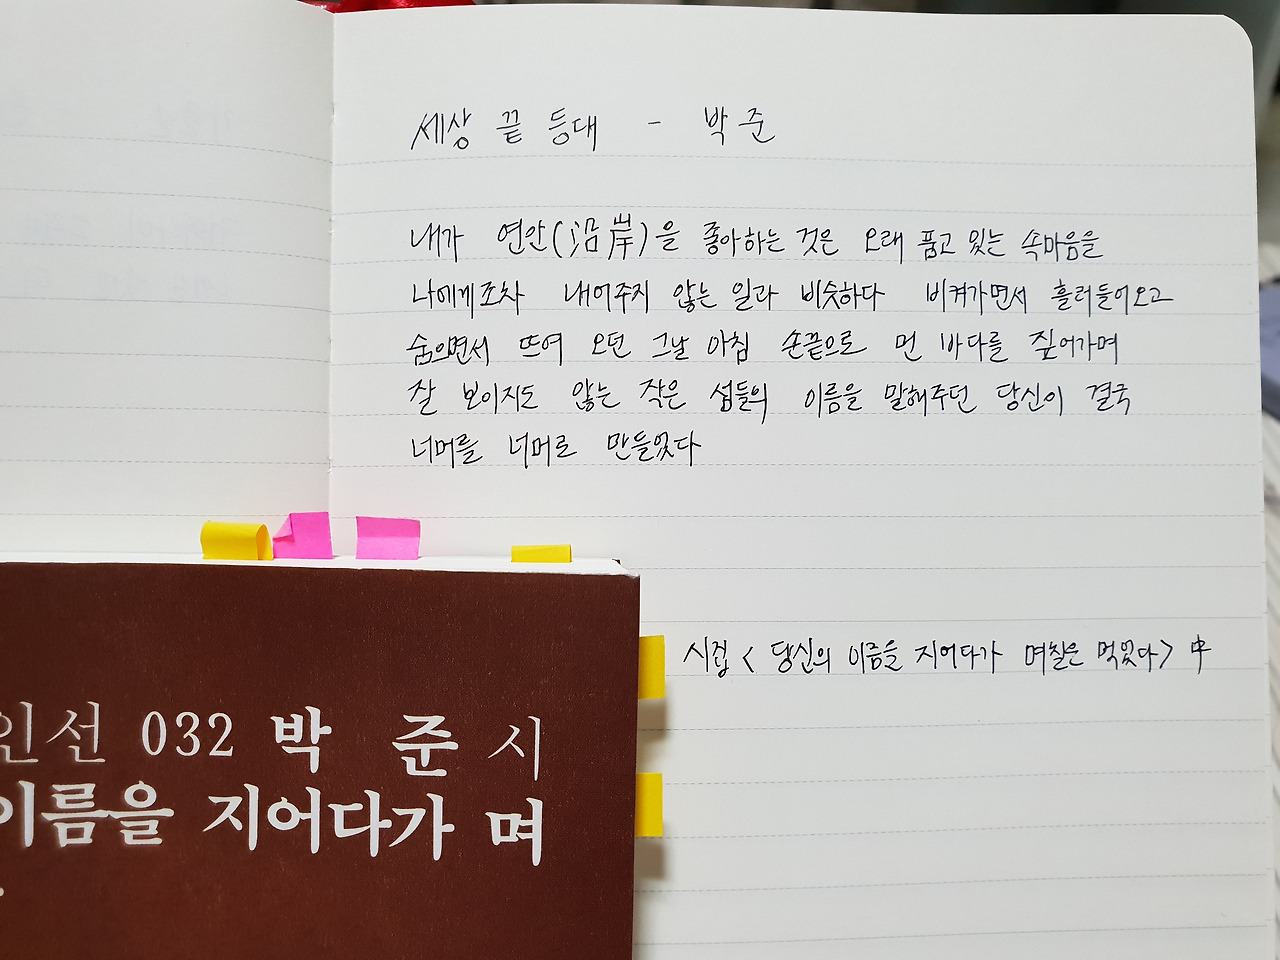 세상 끝 등대 - 박준
내가 연안(沿岸)을 좋아하는 것은 오래 품고 있는 속마음을
나에게조차 내어주지 않는 일과 비슷하다 비켜가면서 흘러들어오고
숨으면서 뜨여 오던 그날 아침 손끝으로 먼 바다를 짚어가며
잘 보이지도 않는 작은 섬들의 이름을 말해주던 당신이 결국
너머를 너머로 만들었다
시집 < 당신의 이름을 지어다가 며칠은 먹었다> 中
인선 032 박 준 시
이름을 지어다가 며